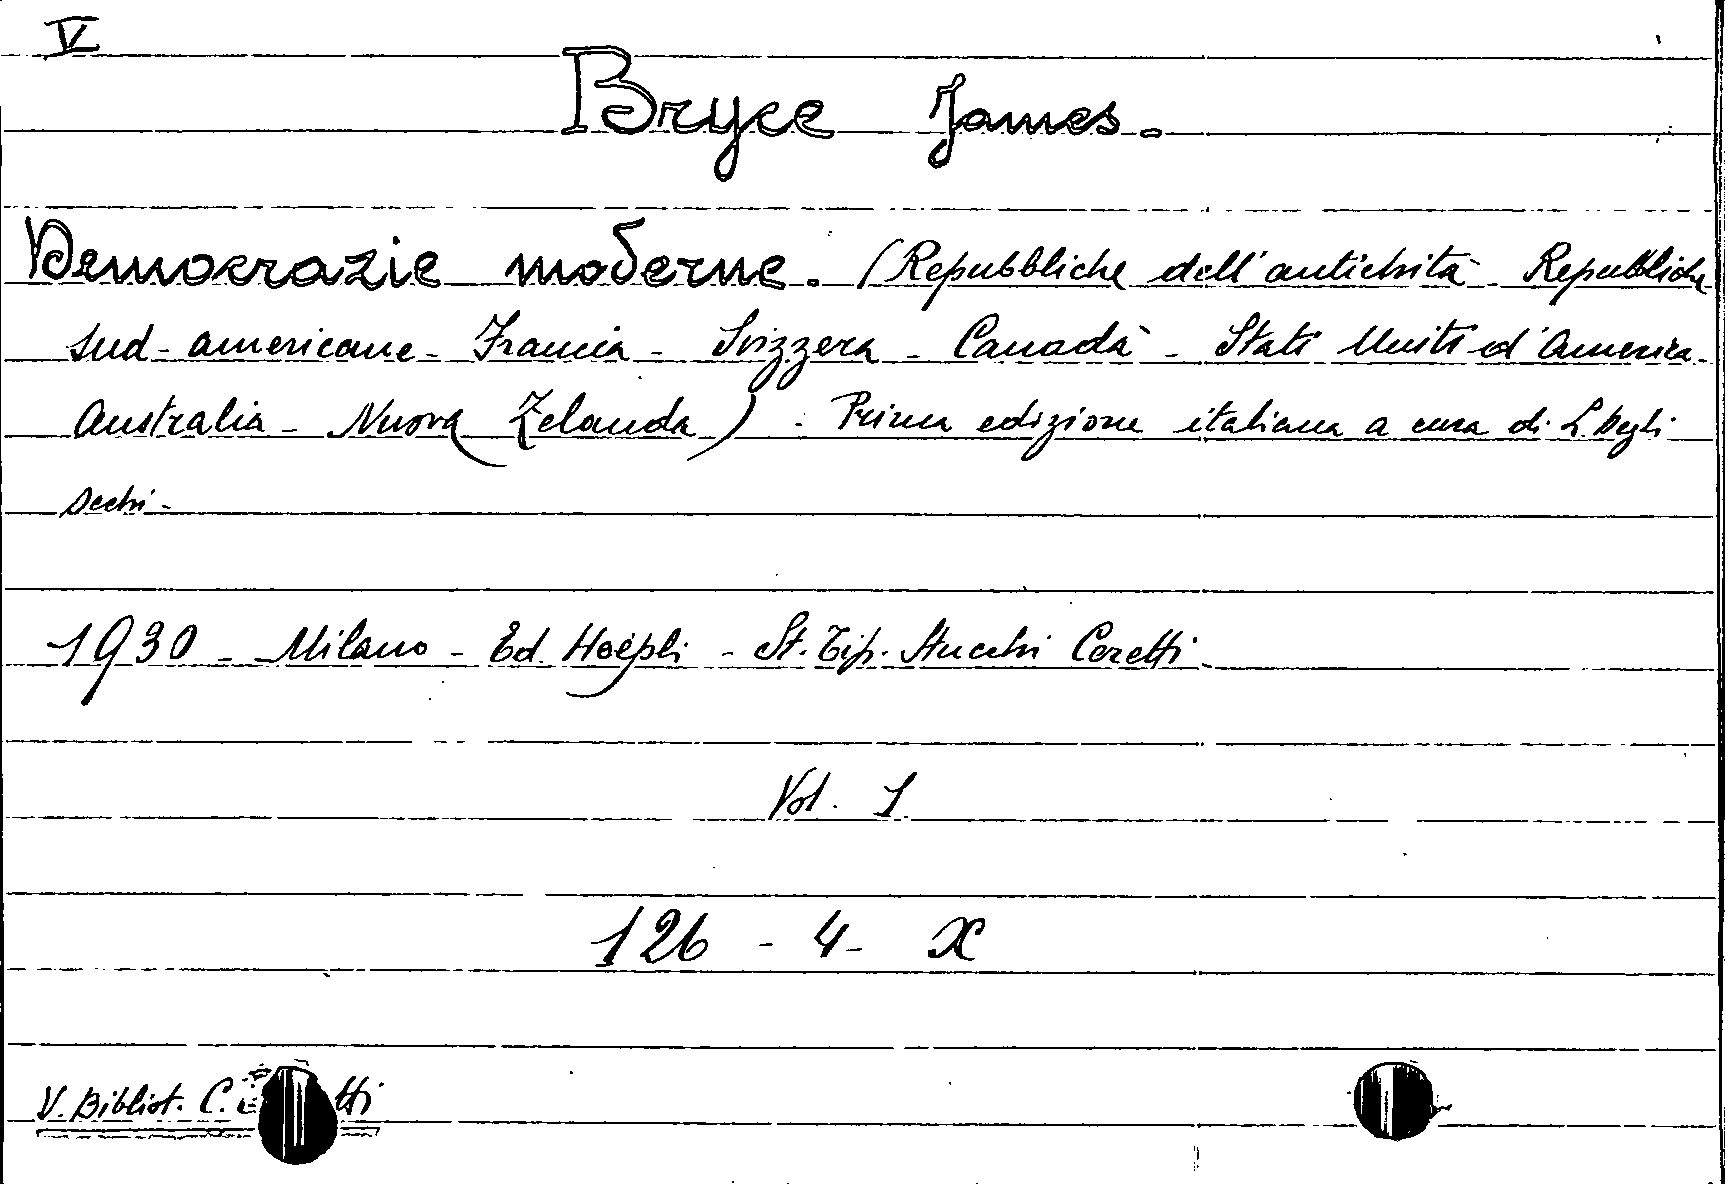 V
Bryce James.
Democrazie moderne. (Repubbliche dell'antichità - Repubbliche
sud-americane - Francia - Svizzera - Canadà - Stati Uniti d'America -
Australia - Nuova Zelanda) - Prima edizione italiana a cura di L. Degli
Occhi -
1930 - Milano - Ed. Hoepli - St. Tip. Stucchi Ceretti -
Vol. 1
126 - 4 - X
V. Bibliot. C.